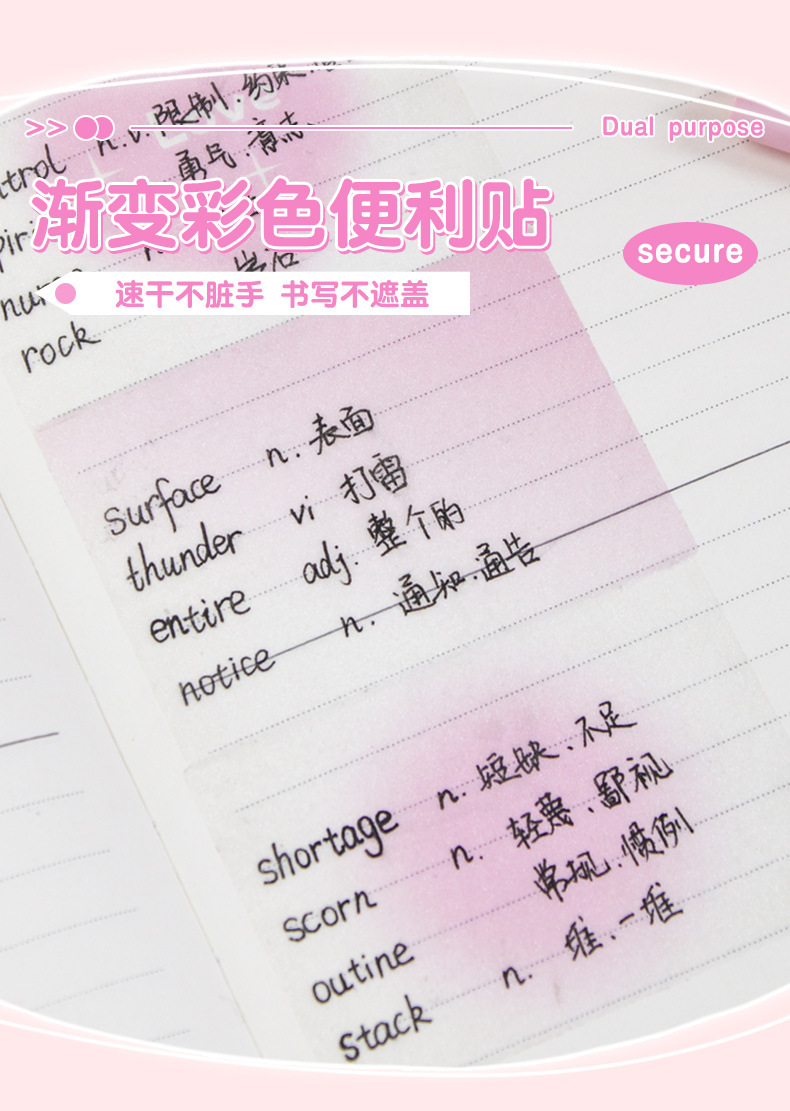 n.v.限制.约束
Love
>> Dual purpose
trol
勇气.意志.
渐变彩色便利贴
secure
速干不脏手 书写不遮盖
rock
surface n. 表面
thunder vi 打雷
entire adj. 整个的
notice n. 通知.通告
shortage n. 短缺.不足
scorn n. 轻蔑.鄙视
outine 常规.惯例
stack n. 堆.一堆